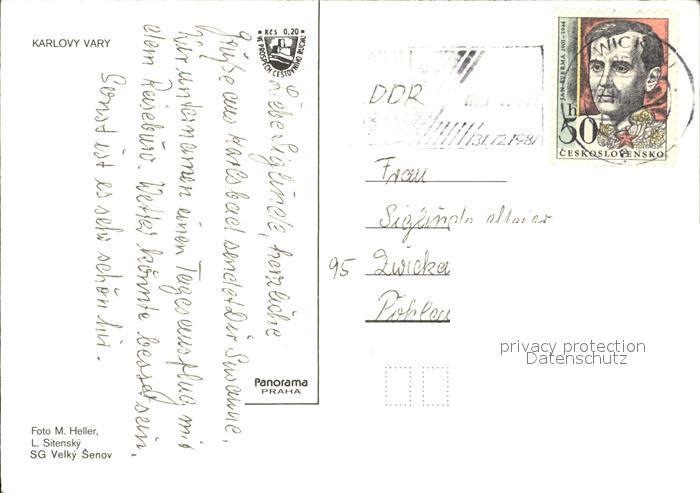 KARLOVY VARY
Kčs 0,20
VE PROSPĚCH CESTOVNÍHO RUCHU
Liebe Siglinde, herzliche
Grüße aus Karlsbad sendet Dir Susanne.
Wir unternamen einen Tagesausflug mit
dem Reisebüro. Wetter könnte besser sein.
Sonst ist es sehr schön hier.
Panorama
PRAHA
Foto M. Heller,
L. Sitenský
SG Velký Šenov
DDR
31.12.198
JAN ŠVERMA 1901-1944
50 h
ČESKOSLOVENSKO
Frau
Siglinde Maier
95 Zwickau
Pöhlau
privacy protection
Datenschutz